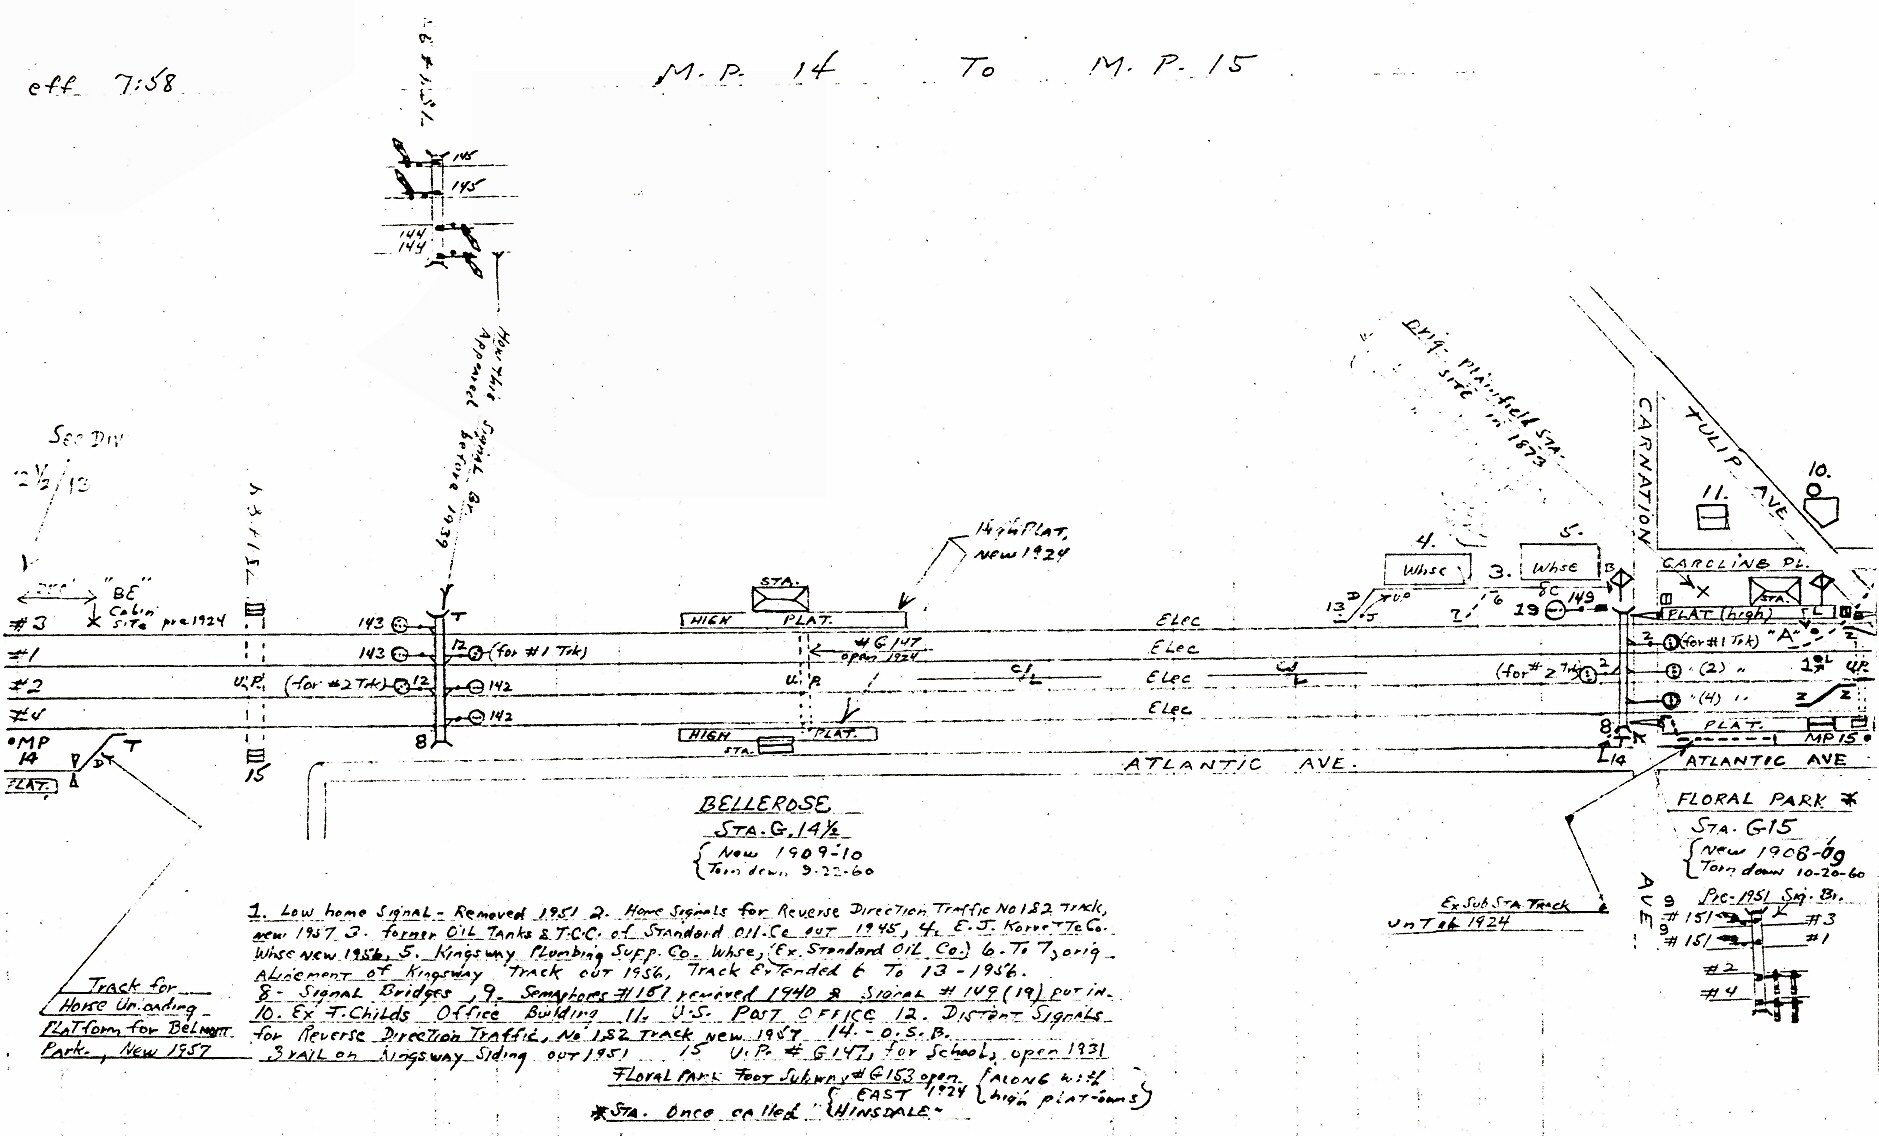 eff 7:58
M. P. 14 To M. P. 15
145
145
144
144
How this Signal Br.
Appeared before 1939
Orig- Plainfield STA-
SITE in 1873
See DIV
2½/13
"BE"
Cabin
Site pre 1924
#3
#1
#2
#4
U.P.
15
143
143
(for #2 Trk)
12
T
12
(for #1 Trk)
142
142
8
STA.
HIGH PLAT.
High PLAT,
New 1924
#G147
open 1924
U. P.
HIGH PLAT.
STA.
Elec
Elec
Elec
Elec
C/L
4.
Whse
3.
5.
Whse
13
D
6
7
19
149
(for #2 Trk)
2
8
T
14
CARNATION
AVE
TULIP AVE
10.
11.
CAROLINE PL.
STA.
PLAT (high)
2
(for #1 Trk)
"A"
(2) "
(4) "
1
2
2
2
U.P.
PLAT.
MP 15
ATLANTIC AVE.
ATLANTIC AVE
MP
14
PLAT.
T
BELLEROSE
STA. G. 14½
New 1909-10
Torn down 9-22-60
FLORAL PARK *
STA. G15
New 1908-09
Torn down 10-20-60
Pre-1951 Sig. Br.
9
#151
#151
9
#3
#1
#2
#4
Ex Sub STA Track
until 1924
Track for
Horse Unloading
Platform for Belmont
Park., New 1957
1. Low home Signal - Removed 1951 2. Home Signals for Reverse Direction Traffic No 1&2 Track,
new 1957 3. former OIL Tanks & T.C.C. of Standard Oil Co out 1945, 4. E.J. Korvette Co.
Whse New 1956, 5. Kingsway Plumbing Supp. Co. Whse, (Ex. Standard OIL Co.) 6. To 7, orig
Alinement of Kingsway Track out 1956, Track Extended 6 To 13 - 1956.
8- Signal Bridges, 9. Semaphores #151 removed 1940 & Signal #149 (19) put in.
10. Ex T. Childs Office Building 11. U.S. POST OFFICE 12. Distant Signals
for Reverse Direction Traffic, No 1&2 Track new 1957 14. - O.S.B.
3 rail on Kingsway Siding out 1951 15 U.P. #G147, for School, open 1931
FLORAL PARK Foot Subway #G153 open EAST 1924 {ALONG with high platforms}
*STA. Once called "HINSDALE"